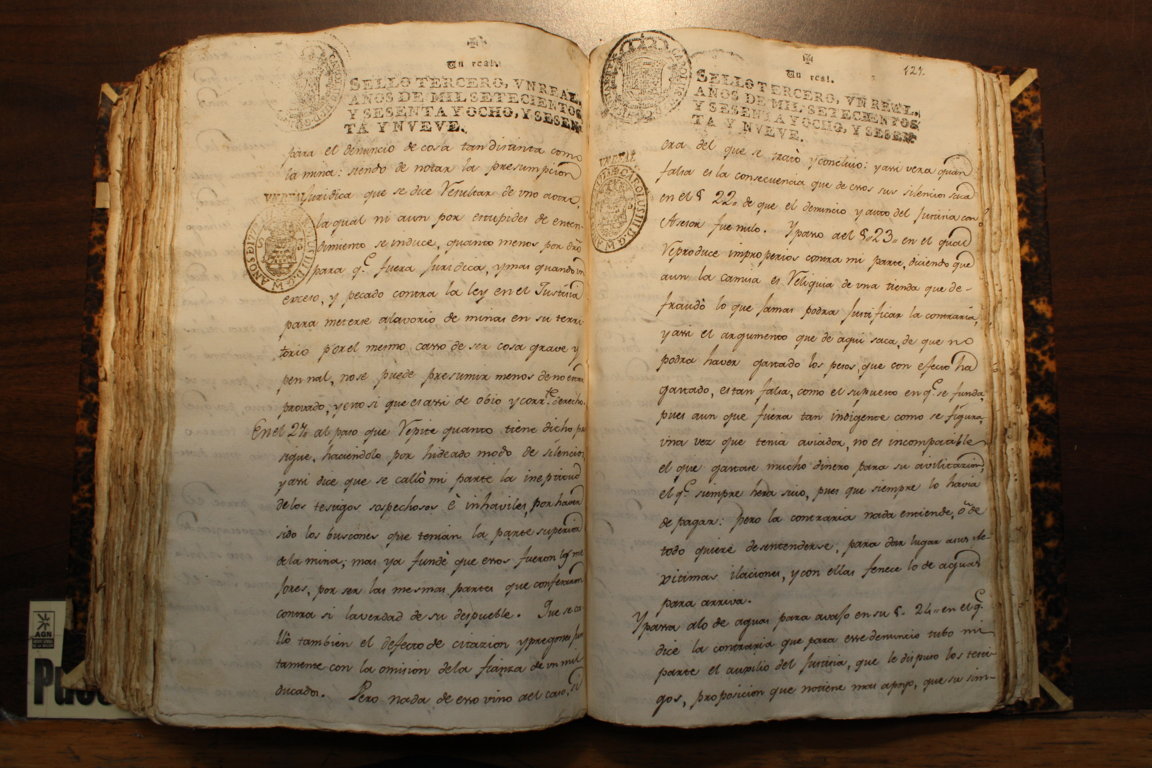 Un real.
SELLO TERCERO, VN REAL,
AÑOS DE MIL SETECIENTOS
Y SESENTA Y OCHO, Y SESEN-
TA Y NVEVE.
VN REAL
para el denuncio de cosa tan distanta como
la mina: siendo de notar la presumpcion
Juridica que se dice Resultar de uno a otra,
la qual ni aun por estupides de enten-
dimiento se induce, quanto menos por dro
para q.e fuera Juridica, y mas quando un
exceso, y pecado contra la ley en el Justicia
para meterse a lavorio de minas en su terri-
torio por el mesmo caso de ser cosa grave y
pennal, no se puede presumir menos de no estar
provado, y esto si que es assi de obio y corr.te derecho.
En el 21,, al paso que Repite quanto tiene dicho pro
sigue, haciendolo por hideado modo de silencio
y assi dice que se callò mi parte la ineptitud
de los testigos sospechosos è inhaviles, por haver
sido los buscones que tenian la parte superior
de la mina; mas ya fundè que estos fueron los me
jores, por ser las mesmas partes que confesaron
contra si la verdad de su despueble. Que se ca
llò tambien el defecto de citazion y pregones, jun
tamente con la omision de la fianza de un mil
ducados. Pero nada de esto vino al caso, ni
Un real.
121.
SELLO TERCERO, VN REAL,
AÑOS DE MIL SETECIENTOS
Y SESENTA Y OCHO, Y SESEN-
TA Y NVEVE.
VN REAL
era del que se tratò y concluio: y assi vera quan
falsa es la consecuencia que de estos sus silencios saca
en el § 22,, de que el denuncio y auto del Justicia con
Asesor fue nulo. Y paso al §. 23,, en el qual
Reproduce improperios contra mi parte, diciendo que
aun la camisa es Reliquia de una tienda que de-
fraudò lo que jamas podra justificar la contraria,
y assi el argumento que de aqui saca, de que no
podra haver gastado los pesos, que con efecto ha
gastado, es tan falso, como el supuesto en q.e se funda,
pues aun que fuera tan indigente como se figura,
una vez que tenia aviador, no es incompatible
el que gastase mucho dinero para su avilitazion,
el q.e siempre hera suio, pues que siempre lo havia
de pagar: Pero la contraria nada entiende, ò de
todo quiere desentenderse, para dar lugar a sus ile
xitimas ilaciones, y con ellas fenece lo de aguas
para arriva.
Y passa a lo de aguas para avaxo en su §. 24,, en el q.e
dice la contraria que para este denuncio tubo mi
parte el auxilio del Justicia, que le dispuso los testi-
gos, proposicion que no tiene mas apoyo, que su sim-
AGN